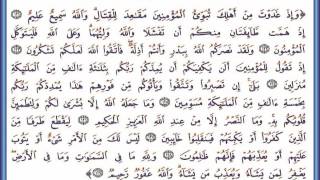 ﴿وَإِذْ غَدَوْتَ مِنْ أَهْلِكَ تُبَوِّئُ الْمُؤْمِنِينَ مَقَاعِدَ لِلْقِتَالِ وَاللَّهُ سَمِيعٌ عَلِيمٌ ۝
إِذْ هَمَّتْ طَائِفَتَانِ مِنْكُمْ أَنْ تَفْشَلَا وَاللَّهُ وَلِيُّهُمَا وَعَلَى اللَّهِ فَلْيَتَوَكَّلِ
الْمُؤْمِنُونَ ۝ وَلَقَدْ نَصَرَكُمُ اللَّهُ بِبَدْرٍ وَأَنْتُمْ أَذِلَّةٌ فَاتَّقُوا اللَّهَ لَعَلَّكُمْ تَشْكُرُونَ ۝
إِذْ تَقُولُ لِلْمُؤْمِنِينَ أَلَنْ يَكْفِيَكُمْ أَنْ يُمِدَّكُمْ رَبُّكُمْ بِثَلَاثَةِ آلَافٍ مِنَ الْمَلَائِكَةِ
مُنْزَلِينَ ۝ بَلَى إِنْ تَصْبِرُوا وَتَتَّقُوا وَيَأْتُوكُمْ مِنْ فَوْرِهِمْ هَذَا يُمْدِدْكُمْ رَبُّكُمْ
بِخَمْسَةِ آلَافٍ مِنَ الْمَلَائِكَةِ مُسَوِّمِينَ ۝ وَمَا جَعَلَهُ اللَّهُ إِلَّا بُشْرَى لَكُمْ وَلِتَطْمَئِنَّ
قُلُوبُكُمْ بِهِ وَمَا النَّصْرُ إِلَّا مِنْ عِنْدِ اللَّهِ الْعَزِيزِ الْحَكِيمِ ۝ لِيَقْطَعَ طَرَفًا مِنَ
الَّذِينَ كَفَرُوا أَوْ يَكْبِتَهُمْ فَيَنْقَلِبُوا خَائِبِينَ ۝ لَيْسَ لَكَ مِنَ الْأَمْرِ شَيْءٌ أَوْ يَتُوبَ
عَلَيْهِمْ أَوْ يُعَذِّبَهُمْ فَإِنَّهُمْ ظَالِمُونَ ۝ وَلِلَّهِ مَا فِي السَّمَاوَاتِ وَمَا فِي الْأَرْضِ
يَغْفِرُ لِمَنْ يَشَاءُ وَيُعَذِّبُ مَنْ يَشَاءُ وَاللَّهُ غَفُورٌ رَحِيمٌ ۝﴾